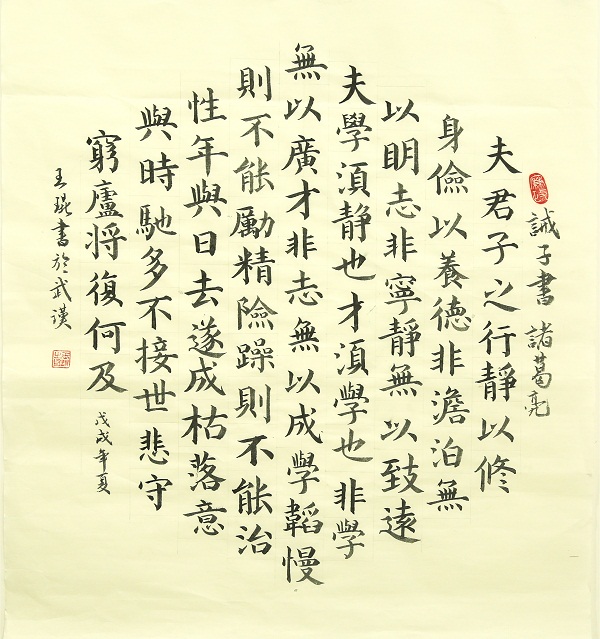 誡子書 諸葛亮
夫君子之行靜以修
身儉以養德非澹泊無
以眀志非寧靜無以致遠
夫學須静也才須學也非學
無以廣才非志無以成學韜慢
則不能勵精險躁則不能治
性年與日去遂成枯落意
與時馳多不接世悲守
窮廬將復何及
戊戌年夏
王琨書於武漢